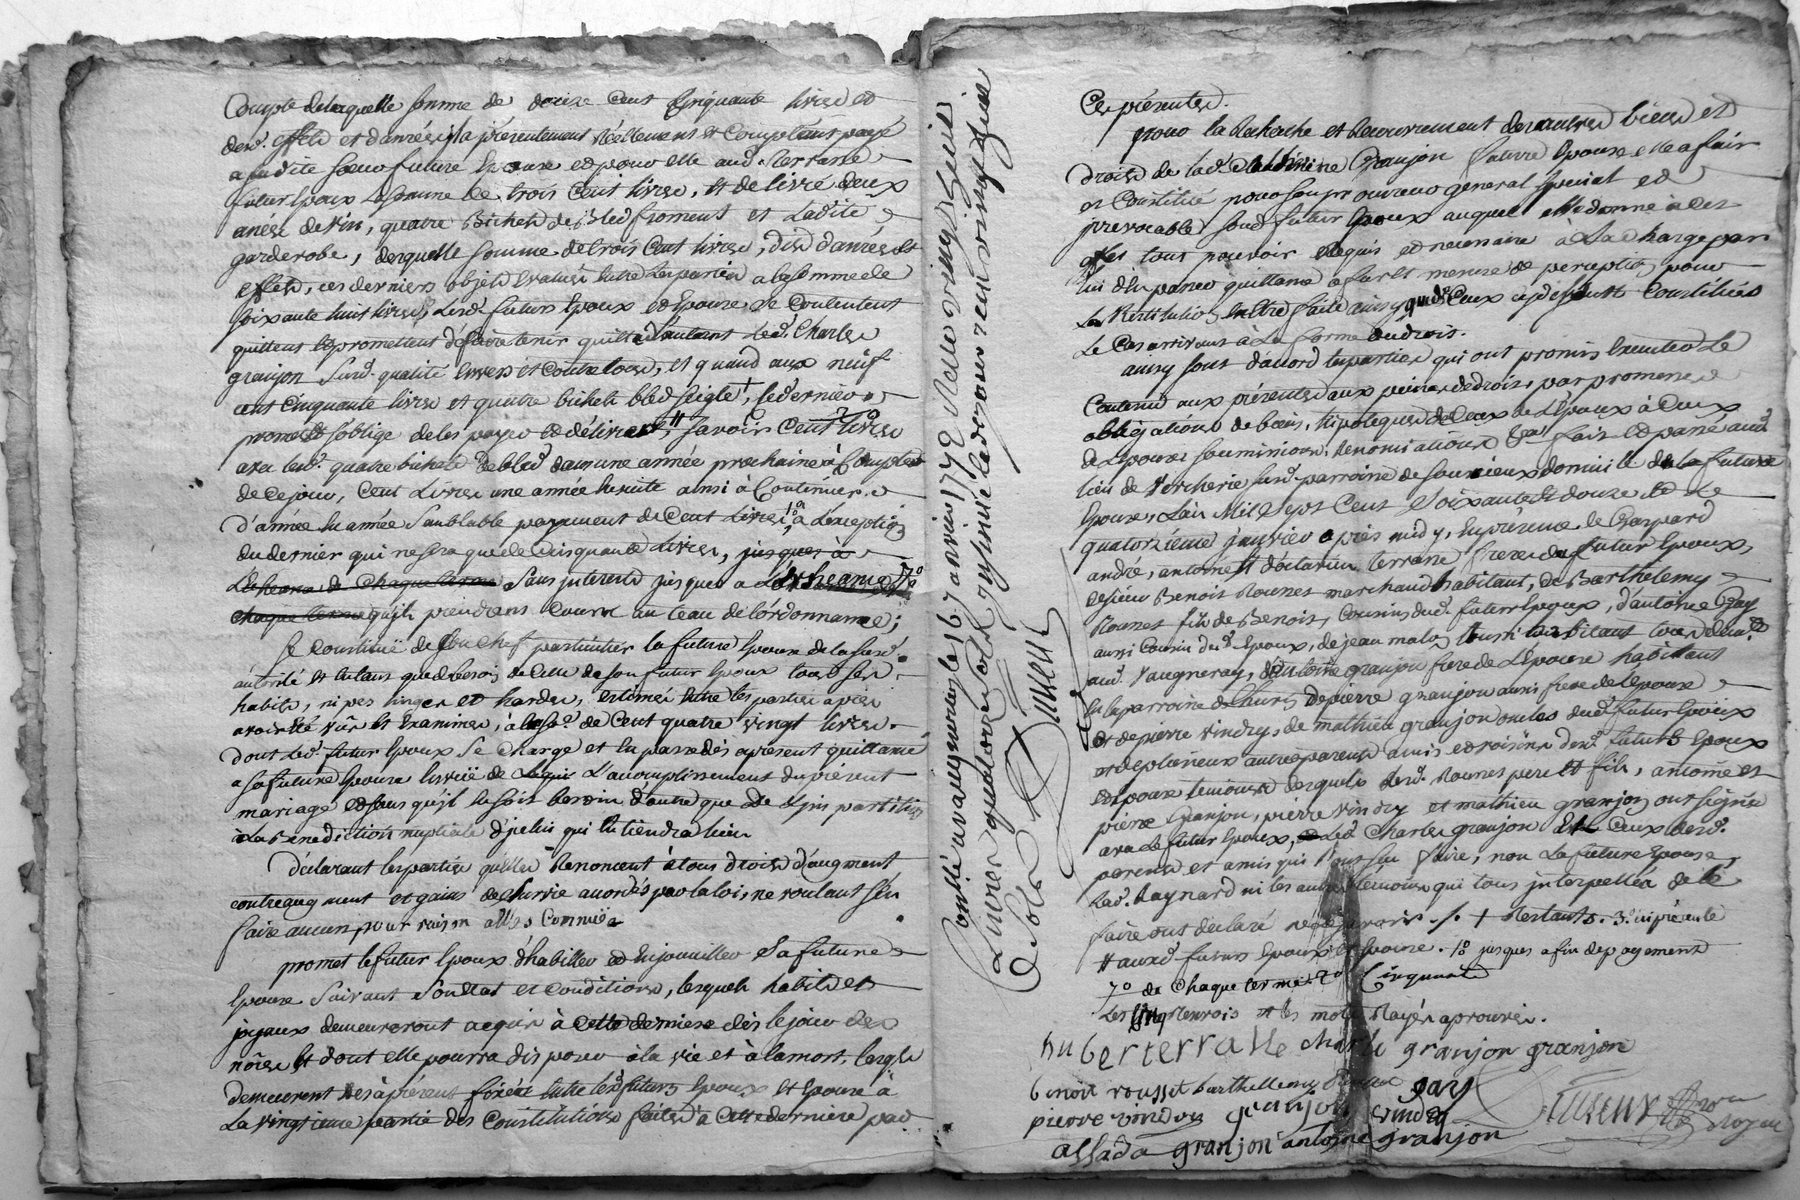 Compte de laquelle somme de douze Cent Cinquante livres et
desd. effets et danrées il a présentement réellement et Comptant payé
a ladite sœur future Epouse et pour elle aud. terrasse
futur Epoux la somme de trois Cent livres, et delivré deux
anées de vin, quatre Bichets de Bled froment et Ladite
garderobe, desquelle somme de trois Cent livres, dites danrées et
effets, ces derniers objets Evalués Entre les parties a la somme de
soixante huit livres, Lesd. futurs Epoux et Epouse se Contentent
quittent et promettent de faire tenir quitte d'autant led. Charles
granjon Susd. qualité Envers et Contre tous, et quand aux neuf
cent Cinquante livres et quatre bichets bled seigle +, ledernier
promet et s'oblige de les payer et délivrer #, savoir Cent 2° livres
avec lesd. quatre bichets de bled dans une année prochaine à Compter
de Ce jour, Cent Livres une année Ensuite ainsi à Continuer
d'année En année Semblable payement de Cent livres 1° à L'exception
du dernier qui ne sera que de Cinquante Livres, jusques à
L'echeance de Chaque terme Sans interets jusques a L'Echeance 7°
chaque terme qu'ils prendront Cours au teau de l'ordonnance;
Se Constitue de Son Chef particulier la future Epouse de la susd.
autorité et En tant que de besoin de Celle de son futur Epoux tous ses
habits, nipes linges et hardes, estimés Entre les parties après
avoir été vus et Examinés, à la so.e de Cent quatre vingt livres.
Dont led. futur Epoux se Charge et En passe dès apresent quittance
a sa future Epouse Ensuite de L'acomplissement du présent
mariage et sans qu'il En soit besoin d'autre que de
à la Bénédiction nuptiale d'jcelui qui En tiendra lieu
Déclarant les parties quelles Renoncent à tous droits d'augment
contreaugment et gains de survie accordés par la loi, ne voulant s'en
faire aucun pour raison a Eux Connue
promet le futur Epoux d'habiller et Enjouailler Sa future
Epouse Suivant Son Etat et Conditions, lesquels habits et
joyaux demeureront acquis à Cette derniere dès le jour des
noces Et dont elle pourra disposer à la vie et à la mort, lesqls
demeurent des apresent fixés Entre lesd. futurs Epoux et Epouse à
La vingtieme partie des Constitutions faites a Cette derniere par
Controllé a vaugneray le 16 janvier 1772 Reçu vingt huit
Livres quatorze sols y jnsinué le dit jour reçu vingt six
Sols
Ces présentes.
pour la Recherche et Recouvrement des autres biens et
droits de lad. Claudine Granjon future Epouse elle a fait
et Constitué pour son procureur general special et
jrrevocable sond. futur Epoux auquel elle donne a cet
effet tout pouvoir Requis et necessaire a La Charge par
lui d'En passer quittance a fur et mesure de perception pour
La Restitution En Etre faite ainsy que de Ceux cy dessus Constitués
Le Cas arrivant à La forme du droit.
ainsy sont d'accord les parties qui ont promis Executer Le
Contenu aux présentes aux peines de droit, par promesses
obligations de biens, hipoteques de Ceux de l'Epoux à Ceux
de L'Epouse, soumissions, Renonciations &a. fait et passé aud.
lieu de Verchery susd. parroisse de domicile de la future
Epouse, L'an Mil Sept Cent Soixante et douze et Le
quatorzieme janvier après midy, En présence de Gaspard
andré, antoine et d'octavien terrasse freres du futur Epoux,
de sieur Benoit Rousset marchand habitant, de Barthelemy
Rousset fils de Benoit, Cousins dud. futur Epoux, d'antoine Gay
aussi Cousin dud. Epoux, de jean malo aussi habitant tous deux
aud. vaugneray, d'antoine granjon frere de L'Epouse habitant
En la parroisse de pierre granjon aussi frere de L'Epouse
et de pierre vindry, de mathieu granjon oncles dud. futur Epoux
et de plusieurs autres parents amis et voisins desd. futurs Epoux
et Epouse temoins desquels lesd. Rousset pere et fils, antoine et
pierre Granjon, pierre vindry et mathieu granjon ont signé
avec le futur Epoux, Led. Charles granjon et Ceux desd.
parents et amis qui l'ont sçu faire, non La future Epouse
Lad. Raynard ni les autres temoins qui tous jnterpellés de le
faire ont déclaré ne sçavoir ./. + Restants. 3° cy présente
# auxd. futurs Epoux et Epouse. 1° jusques a fin de payement
7° de Chaque terme. 2° Cinquante
Les Cinq Renvois et les mots Rayés aprouvés.
huberterrasse charle granjon granjon
benoit rousset barthellemy Rousset gay
pierre vindry granjon vindry
granjon antoine granjon